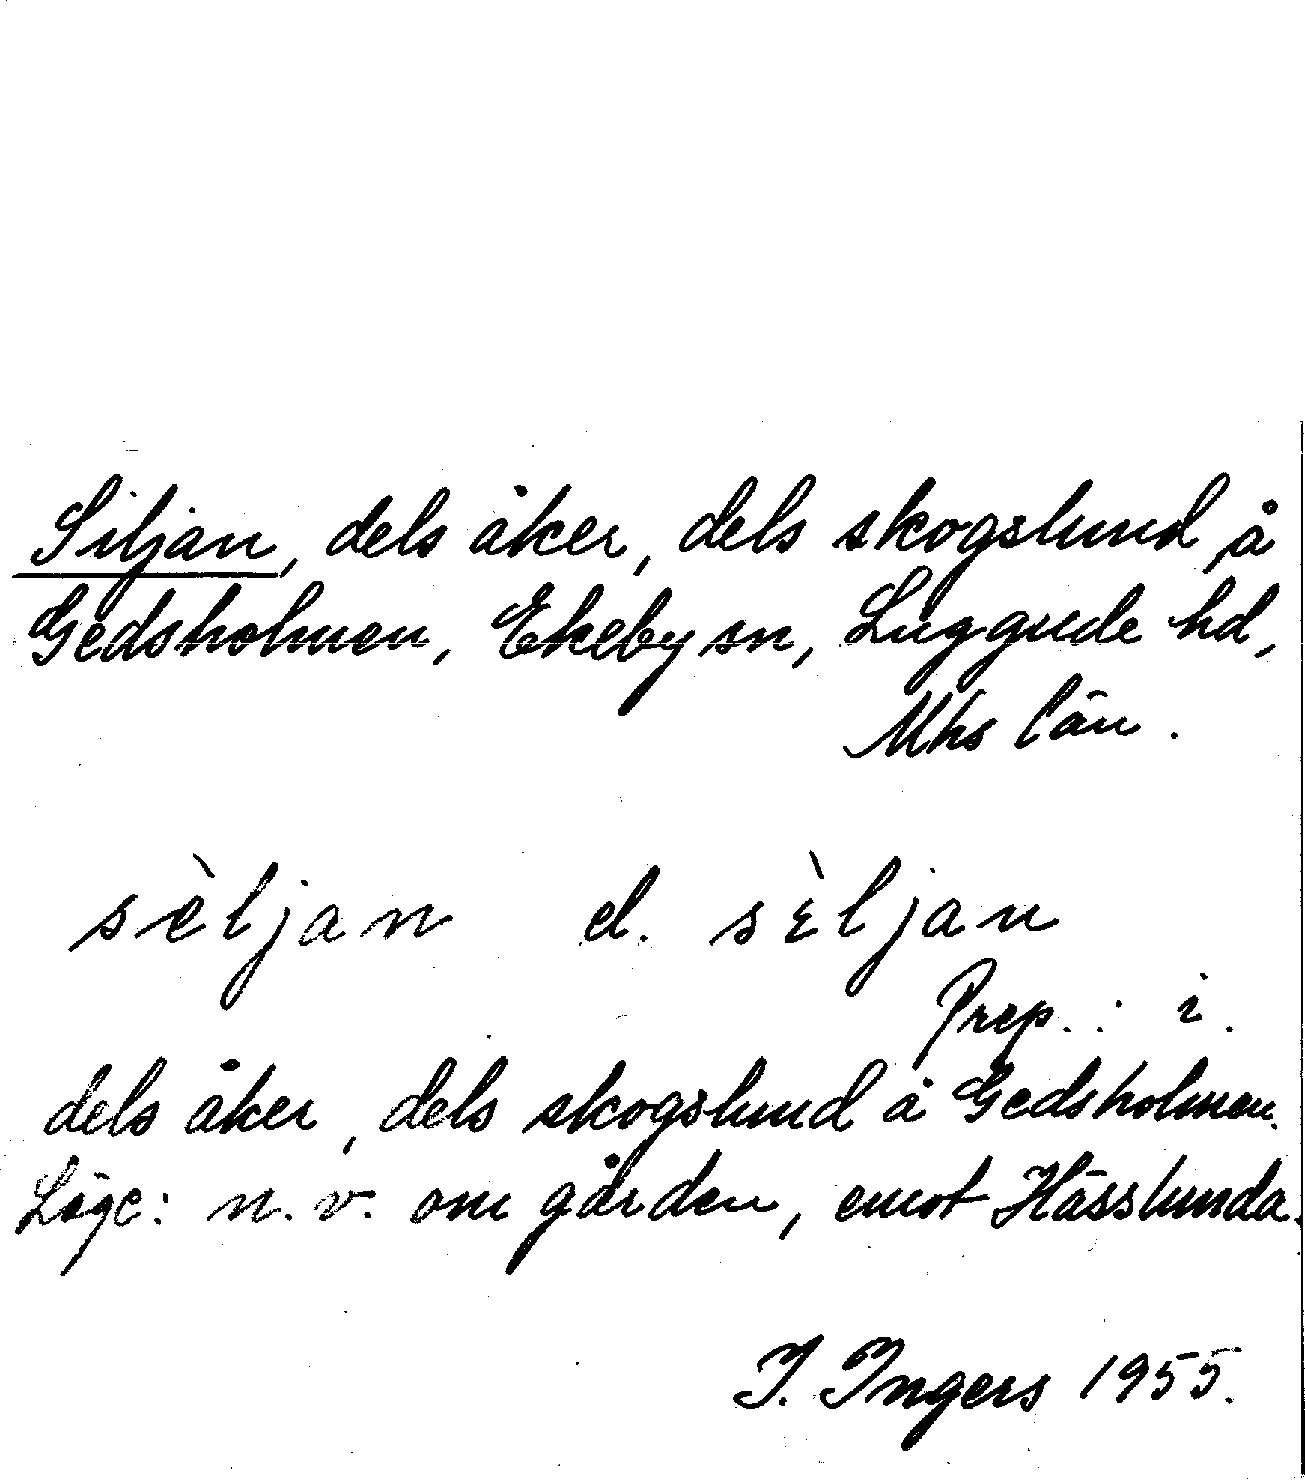 Siljan, dels åker, dels skogslund å
Gedsholmen, Ekeby sn, Luggude hd,
Mhs län.
sèljan el. sὲljan
Prep.: i.
dels åker, dels skogslund å Gedsholmen.
Läge: n.v. om gården, emot Hässlunda.
I. Ingers 1955.